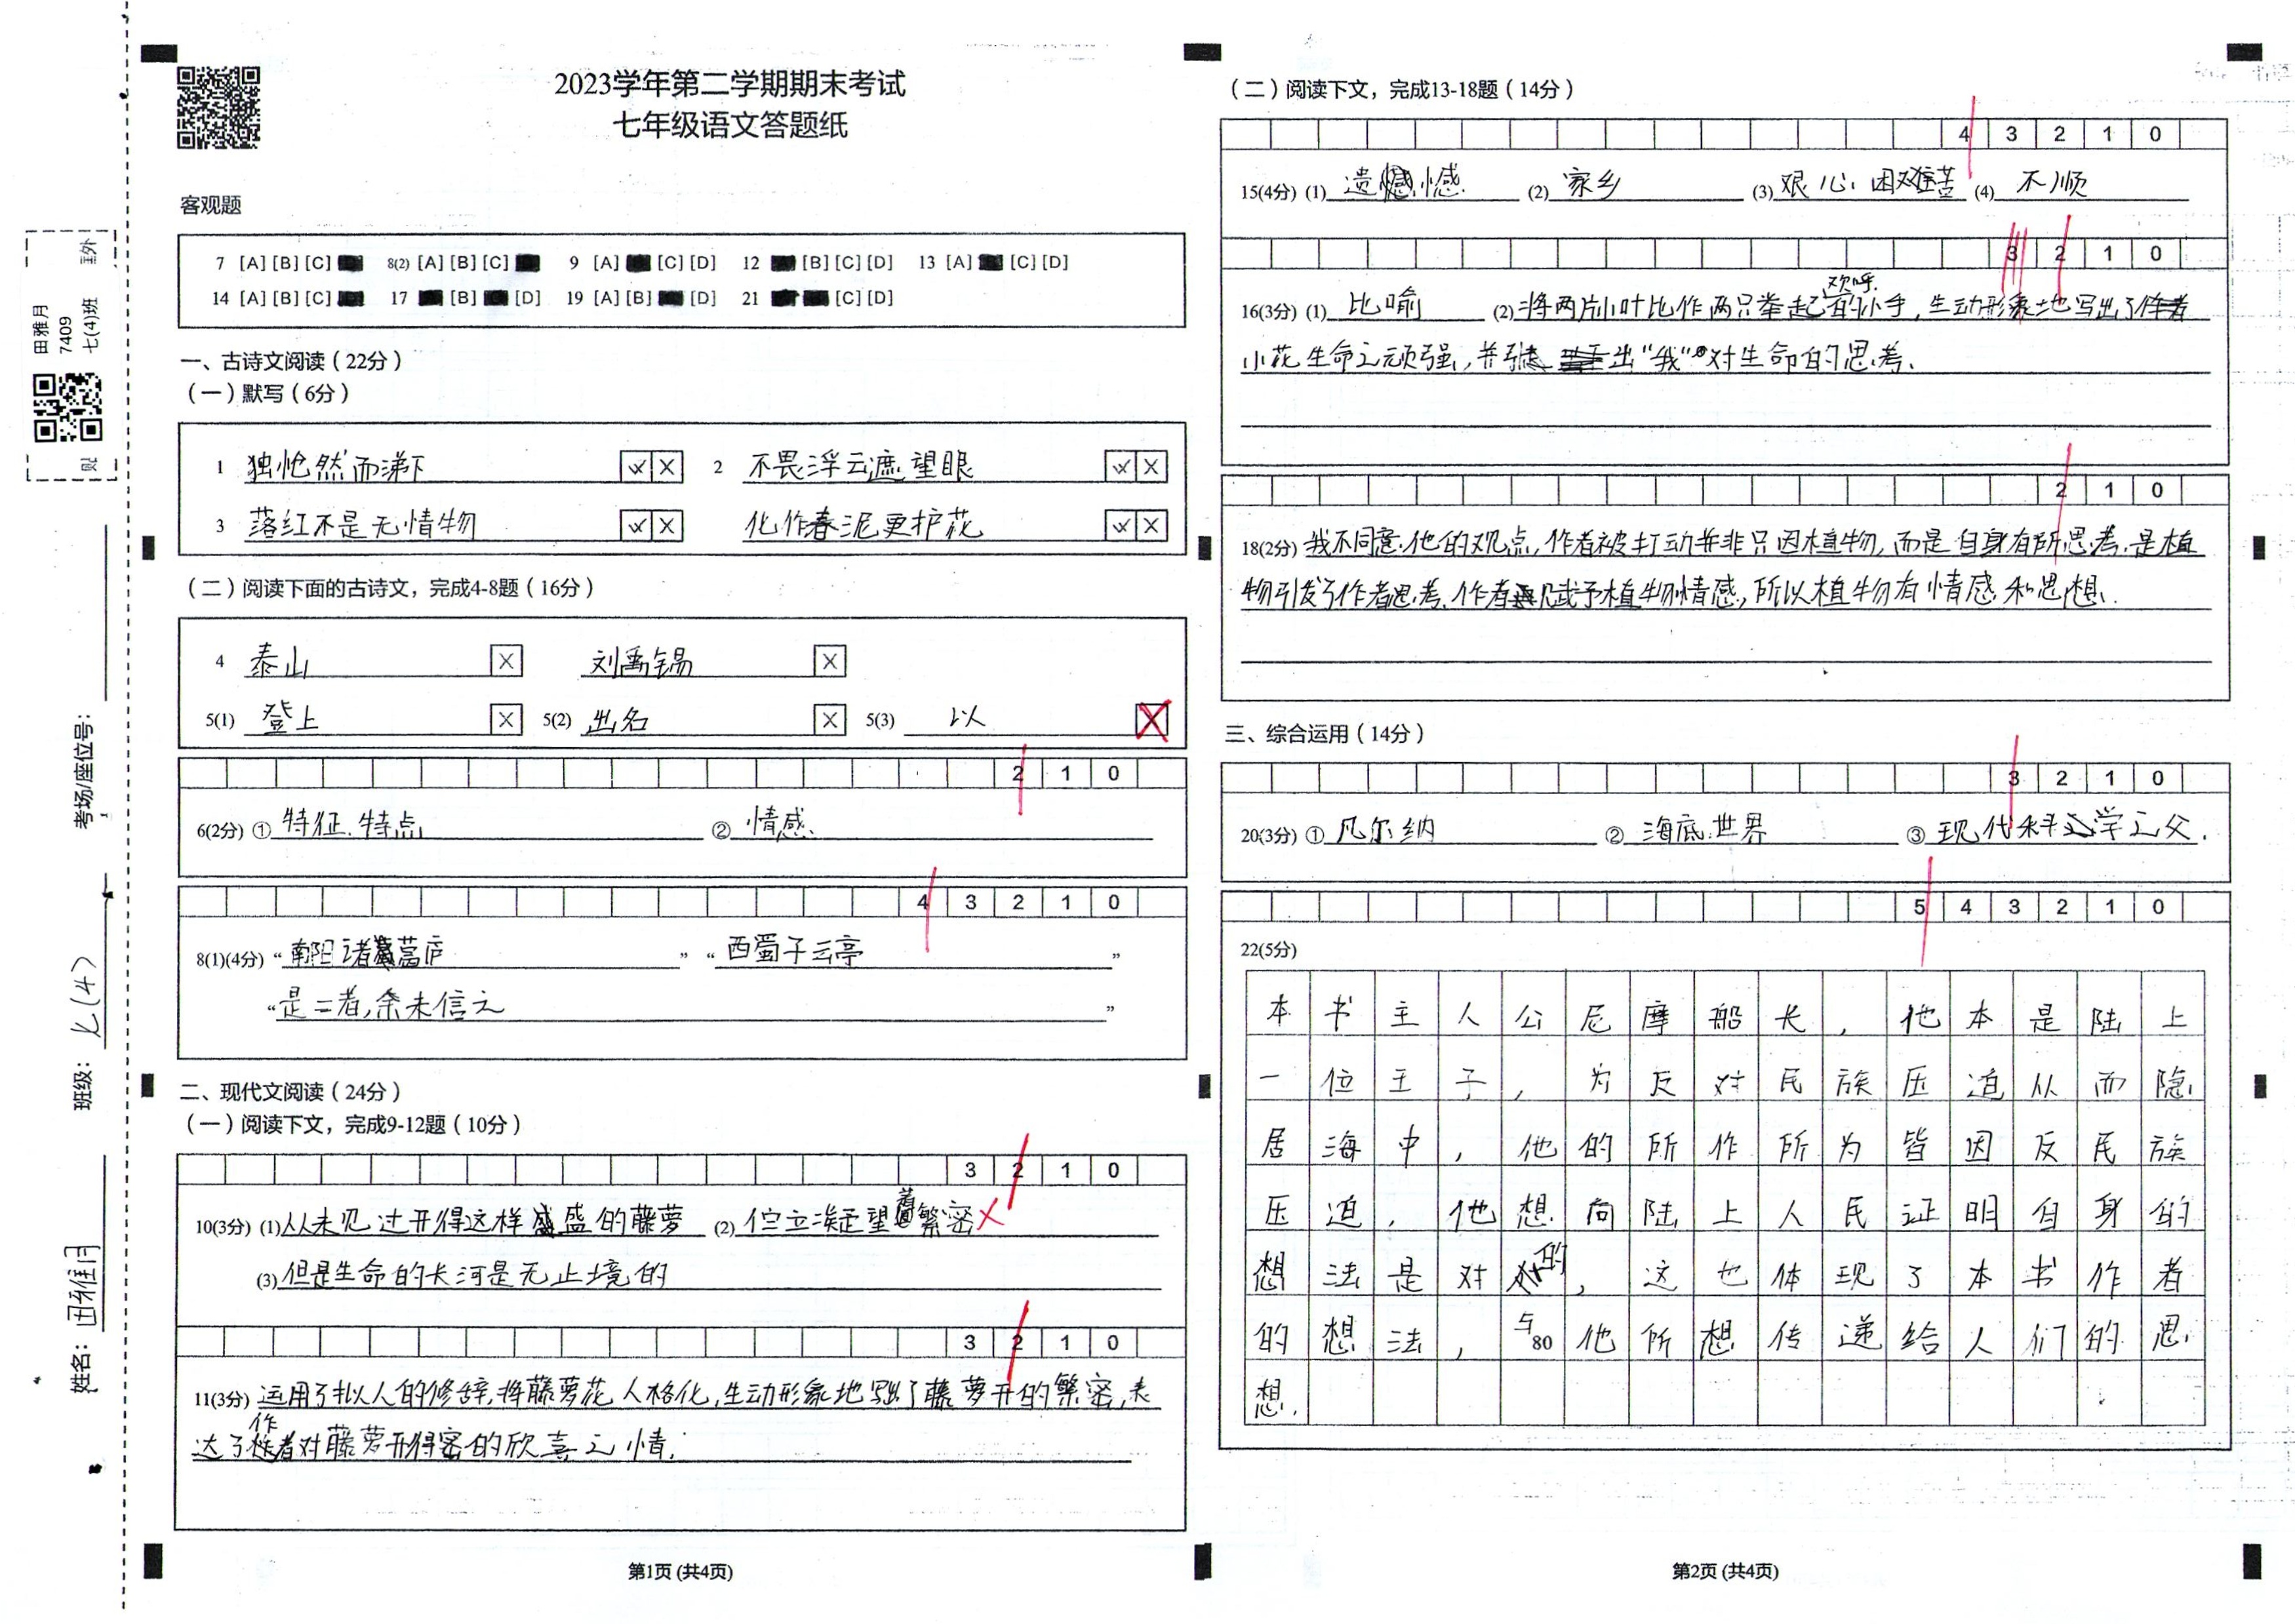 2023学年第二学期期末考试
七年级语文答题纸
田雅月
7409
七(4)班
考场/座位号:
班级: 七(4)
姓名: 田雅月
客观题
7 [A] [B] [C] 8(2) [A] [B] [C] 9 [A] [C] [D] 12 [B] [C] [D] 13 [A] [C] [D]
14 [A] [B] [C] 17 [B] [D] 19 [A] [B] [D] 21 [C] [D]
一、古诗文阅读(22分)
(一)默写(6分)
1 独怆然而涕下 2 不畏浮云遮望眼
3 落红不是无情物 化作春泥更护花
(二)阅读下面的古诗文,完成4-8题(16分)
4 泰山 X 刘禹锡 X
5(1) 登上 X 5(2) 出名 X 5(3) 以 X
2 1 0
6(2分) ① 特征、特点 ② 情感
4 3 2 1 0
8(1)(4分) “南阳诸葛庐” “西蜀子云亭”
“是二者,余未信之”
二、现代文阅读(24分)
(一)阅读下文,完成9-12题(10分)
3 2 1 0
10(3分) (1) 从未见过开得这样盛的藤萝 (2) 伫立凝望着繁密
(3) 但是生命的长河是无止境的
3 2 1 0
11(3分) 运用了拟人的修辞,将藤萝花人格化,生动形象地写出了藤萝开的繁密,表
达了作者对藤萝开得密的欣喜之情.
第1页 (共4页)
(二)阅读下文,完成13-18题(14分)
4 3 2 1 0
15(4分) (1) 遗憾 (2) 家乡 (3) 艰心、困难苦 (4) 不顺
3 2 1 0
16(3分) (1) 比喻 (2) 将两片小叶比作两只举起欢呼的小手,生动形象地写出了
小花生命之顽强,并引出“我”对生命的思考.
2 1 0
18(2分) 我不同意他的观点,作者被打动并非只因植物,而是自身有所思考.是植
物引发了作者思考.作者赋予植物情感,所以植物有情感和思想.
三、综合运用(14分)
3 2 1 0
20(3分) ① 凡尔纳 ② 海底世界 ③ 现代科学之父.
5 4 3 2 1 0
22(5分)
本书主人公尼摩船长,他本是陆上
一位王子,为反对民族压迫从而隐
居海中,他的所作所为皆因反民族
压迫,他想向陆上人民证明自身的
想法是对的,这也体现了本书作者
的想法,与他所想传递给人们的思
80
想.
第2页 (共4页)